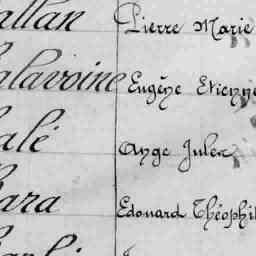 allan Pierre Marie
alavoine Eugène Etienne
alé Ange Jules
ara Edouard Théophil